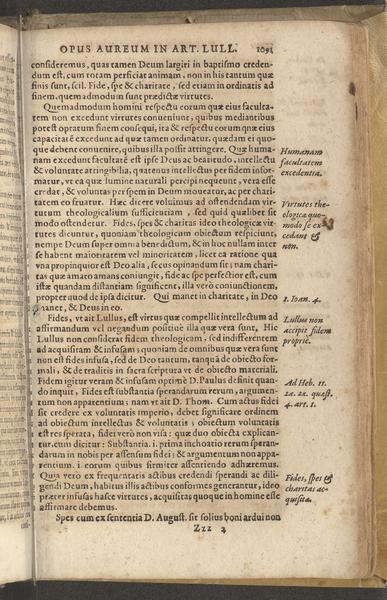 OPUS AUREUM IN ART. LULL. 1091
consideremus, quas tamen Deum largiri in baptismo creden-
dum est, cum totam perficiat animam, non in his tantum quæ
finis sunt, scil. Fide, spe & charitate, sed etiam in ordinatis ad
finem, quemadmodum sunt prædictæ virtutes.
Quemadmodum homini respectu eorum quæ eius faculta-
tem non excedunt virtutes conveniunt, quibus mediantibus
potest optatum finem consequi, ita & respectu eorum quæ eius
capacitatē excedunt ad quæ tamen ordinatur, quædam ei quo-
que debent convenire, quibus illa possit attingere. Quæ huma-
nam excedunt facultatē est ipse Deus ac beatitudo, intellectu
& voluntate attingibilia, quatenus intellectus per fidem infor-
matur, vt ea quæ lumine naturali percipi nequeunt, vera esse
credat, & voluntas per spem in Deum moueatur, ac per chari-
tatem eo fruatur. Hæc dicere voluimus ad ostendendam vir-
tutum theologicalium sufficientiam, sed quid quælibet sit
modo ostendetur. Fides, spes & charitas ideo theologicæ vir-
tutes dicuntur, quoniam theologicum obiectum respiciunt,
nempe Deum super omnia benedictum, & in hoc nullam inter
se habent maioritatem vel minoritatem, licet ea ratione qua
vna propinquior est Deo alia, secus opinandum sit: nam chari-
tas quæ amato amans coniungit, fide ac spe perfectior est, cum
istæ quandam distantiam significent, illa verò coniunctionem,
propter quod de ipsa dicitur. Qui manet in charitate, in Deo
manet, & Deus in eo.
Fides, vt ait Lullus, est virtus quæ compellit intellectum ad
affirmandum vel negandum positiuè illa quæ vera sunt. Hic
Lullus non considerat fidem theologicam, sed indifferentem
ad acquisitam & infusam: quoniam de omnibus quæ vera sunt
non est fides infusa, sed de Deo tantum, tanquā de obiecto for-
mali, & de traditis in sacra scriptura vt de obiecto materiali.
Fidem igitur veram & infusam optimè D. Paulus definit quan-
do inquit, Fides est substantia sperandarum rerum, argumen-
tum non apparentium; nam vt ait D. Thom. Cum actus fidei
sit credere ex voluntatis imperio, debet significare ordinem
ad obiectum intellectus & voluntatis: obiectum voluntatis
est res sperata, fidei verò non visa: quæ duo obiecta explican-
tur, cum dicitur: Substantia. i. prima inchoatio rerum speran-
darum in nobis per assensum fidei; & argumentum non appa-
rentium. i. eorum quibus firmiter assentiendo adhæremus.
Quia verò ex frequentatis actibus credendi sperandi ac dili-
gendi Deum, habitus illis actibus conformes generantur, ideo
præter infusas hasce virtutes, acquisitas quoque in homine esse
affirmare debemus.
Spes cum ex sententia D. August. sit solius boni ardui non
Zzz 2
Humanam
facultatem
excedentia.
Virtutes the-
ologicæ quo-
modo se ex-
cedant &
non.
1. Ioan. 4.
Lullus non
accipit fidem
propriè.
Ad Heb. 11.
2a. 2æ. quæst.
4. art. 1.
Fides, spes &
charitas ac-
quisita.